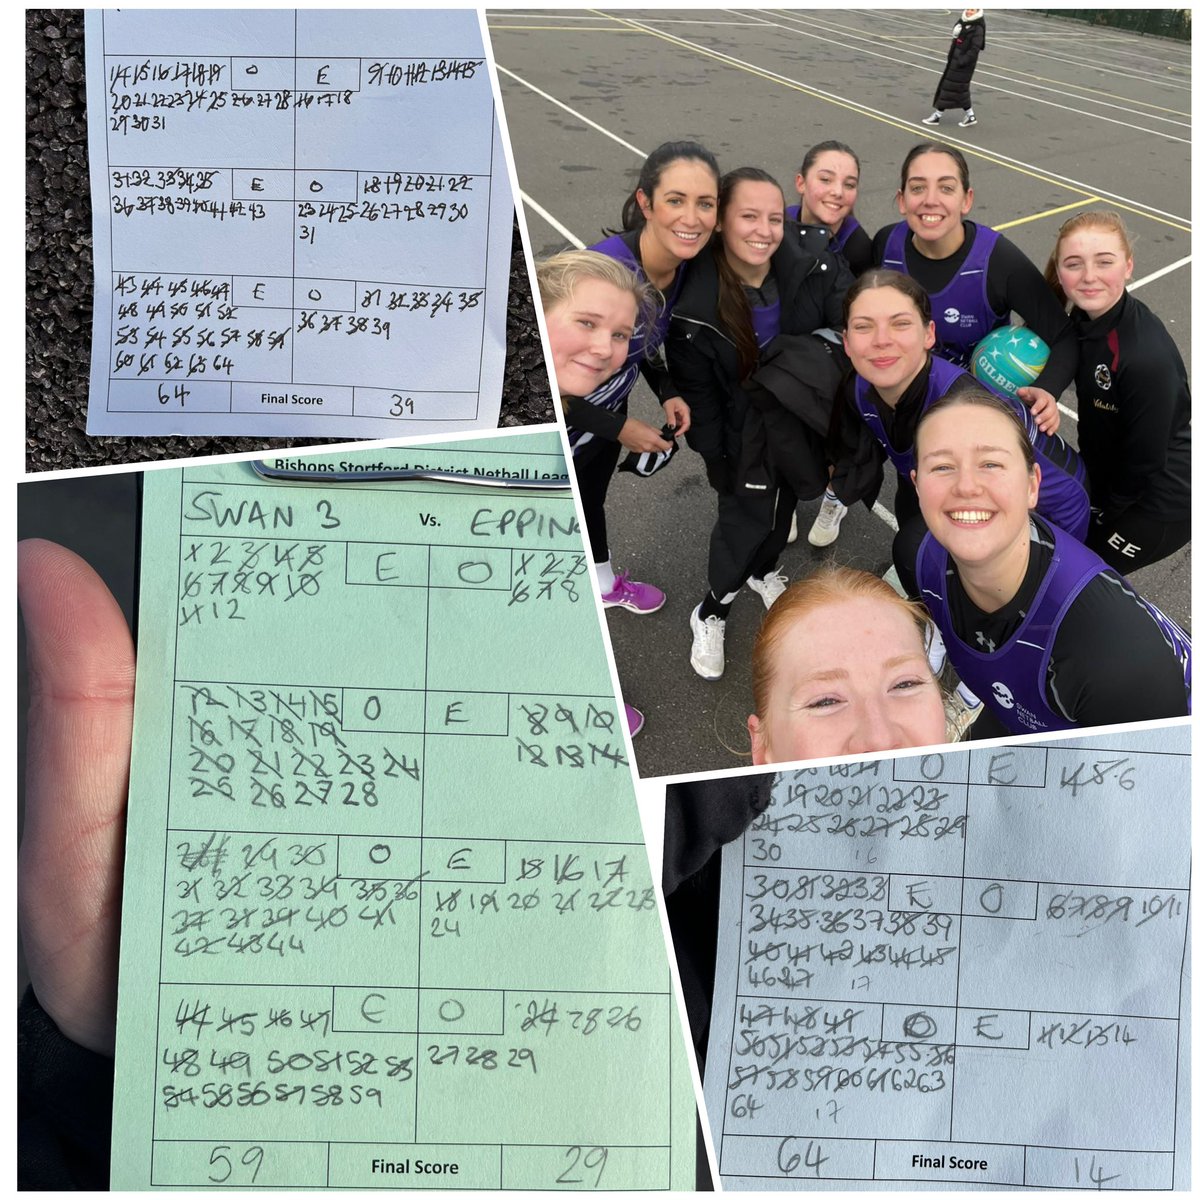 14 15 16 17 18 19 O E 9 10 11 12 13 14 15
20 21 22 23 24 25 26 27 28 16 17 18
29 30 31
31 32 33 34 35 E O 18 19 20 21 22
36 37 38 39 40 41 42 43 23 24 25 26 27 28 29 30
31
43 44 45 46 47 E O 31 32 33 34 35
48 49 50 51 52 36 37 38 39
53 54 55 56 57 58 59
60 61 62 63 64
64 Final Score 39
SWAN NETBALL CLUB
GILBE
Velocity
EE
SWAN NETBALL CLUB
Bishops Stortford District Netball Leag
SWAN 3 Vs. EPPIN
1 2 3 4 5 E O 1 2 3
6 7 8 9 10 6 7 8
11 12
12 13 14 15 O E 8 9 10
16 17 18 19 12 13 14
20 21 22 23 24
25 26 27 28
29 30 O E 16 17
31 32 33 34 35 36 18 19 20 21 22 23
37 38 39 40 41 24
42 43 44
44 45 46 47 E O 24 25 26
48 49 50 51 52 53 27 28 29
54 55 56 57 58 59
59 Final Score 29
O E 4 5 6
19 20 21 22 23
24 25 26 27 28 29
30 16
30 31 32 33 E O 6 7 8 9 10 11
34 35 36 37 38 39
40 41 42 43 44 45
46 47 17
47 48 49 O E 11 12 13 14
50 51 52 53 54 55 56
57 58 59 60 61 62 63
64 17
64 Final Score 14